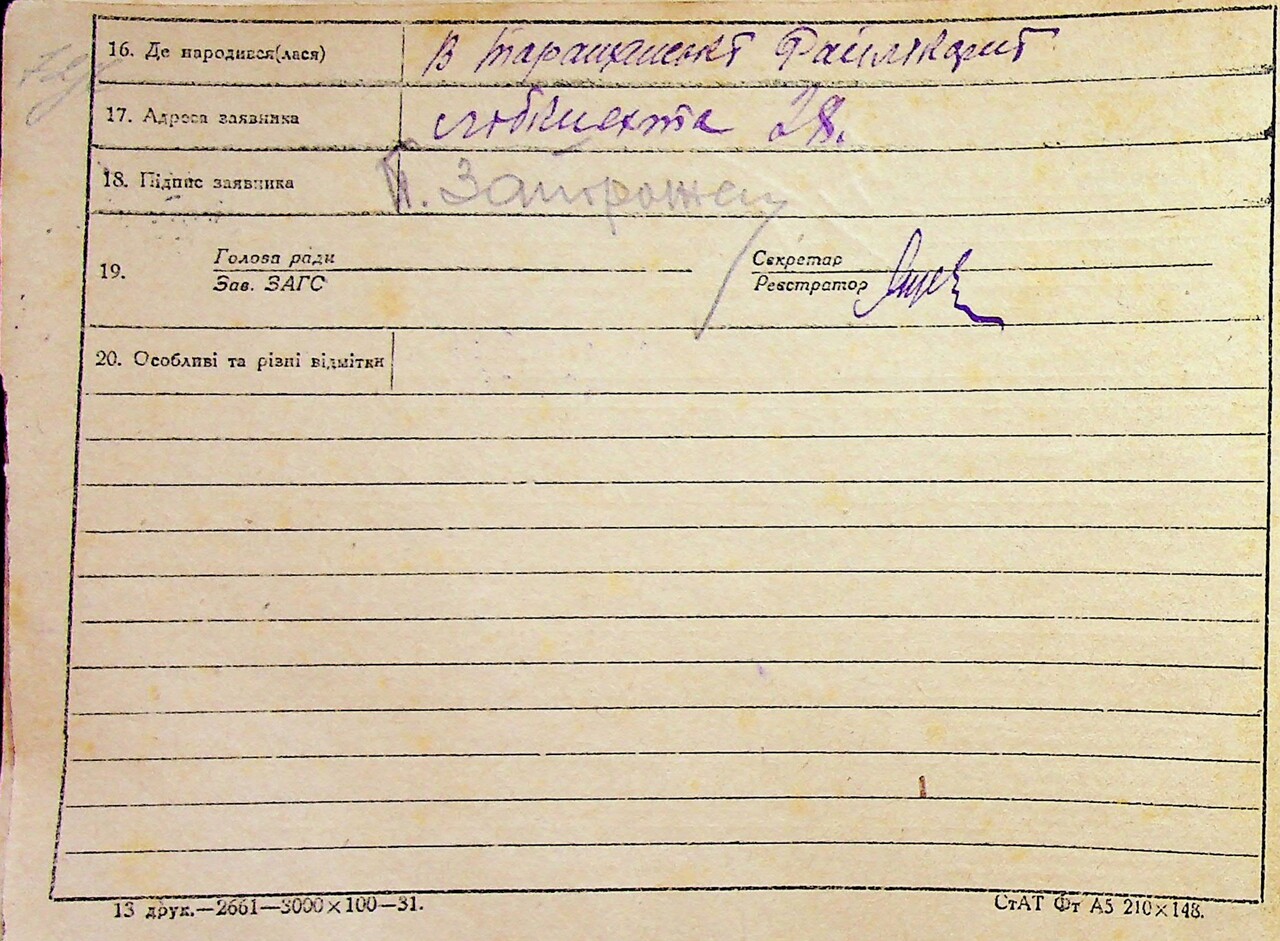 16. Де народився(лася) В Таращанські Райлікарні
17. Адреса заявника Лібкнехта 28.
18. Підпис заявника П. Запорожец
19. Голова ради Секретар
Зав. ЗАГС Реєстратор
20. Особливі та різні відмітки
13 друк.—2661—3000×100—31. СтАТ Фт А5 210×148.